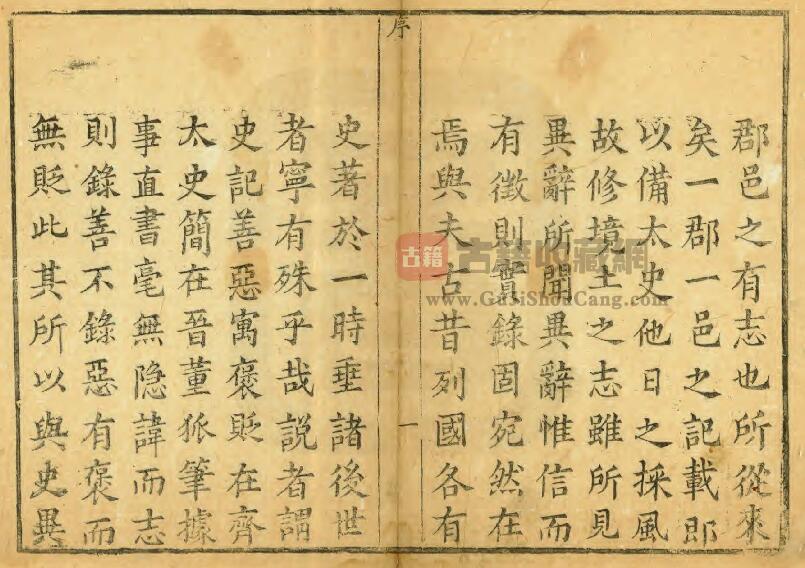 郡邑之有志也所從來
矣一郡一邑之記載即
以備太史他日之採風
故修境土之志雖所見
異辭所聞異辭惟信而
有徵則實錄固宛然在
焉與夫古昔列國各有
序
一
史著於一時垂諸後世
者寧有殊乎哉説者謂
史記善惡寓褒貶在齊
太史簡在晉董狐筆據
事直書毫無隐諱而志
則錄善不錄惡有褒而
無貶此其所以與史異
古籍
古籍收藏網
www.GuSiShouCang.com